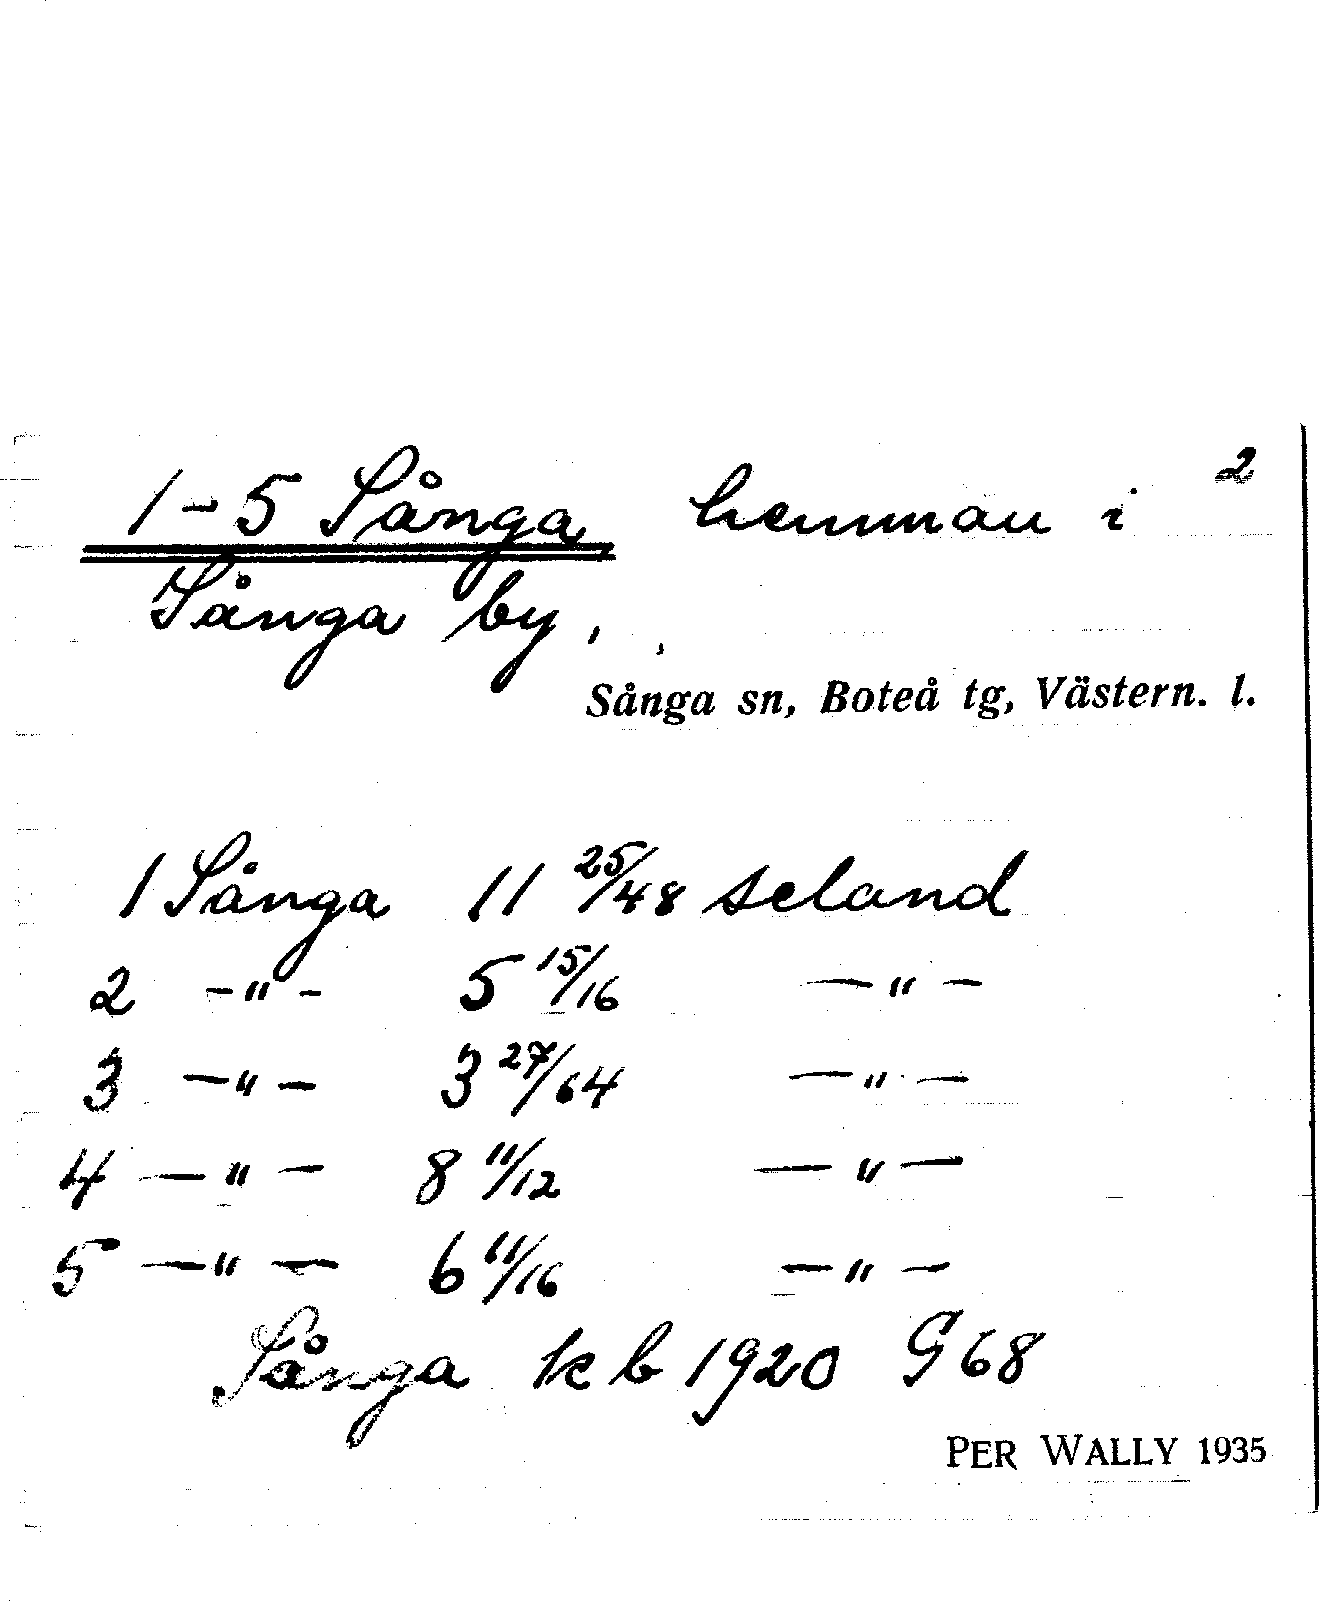 2
1-5 Sånga hemman i
Sånga by,
Sånga sn, Boteå tg, Västern. l.
1 Sånga 11 25/48 seland
2 -"- 5 15/16 -"-
3 -"- 3 27/64 -"-
4 -"- 8 11/12 -"-
5 -"- 6 11/16 -"-
Sånga kb 1920 G 68
PER WALLY 1935